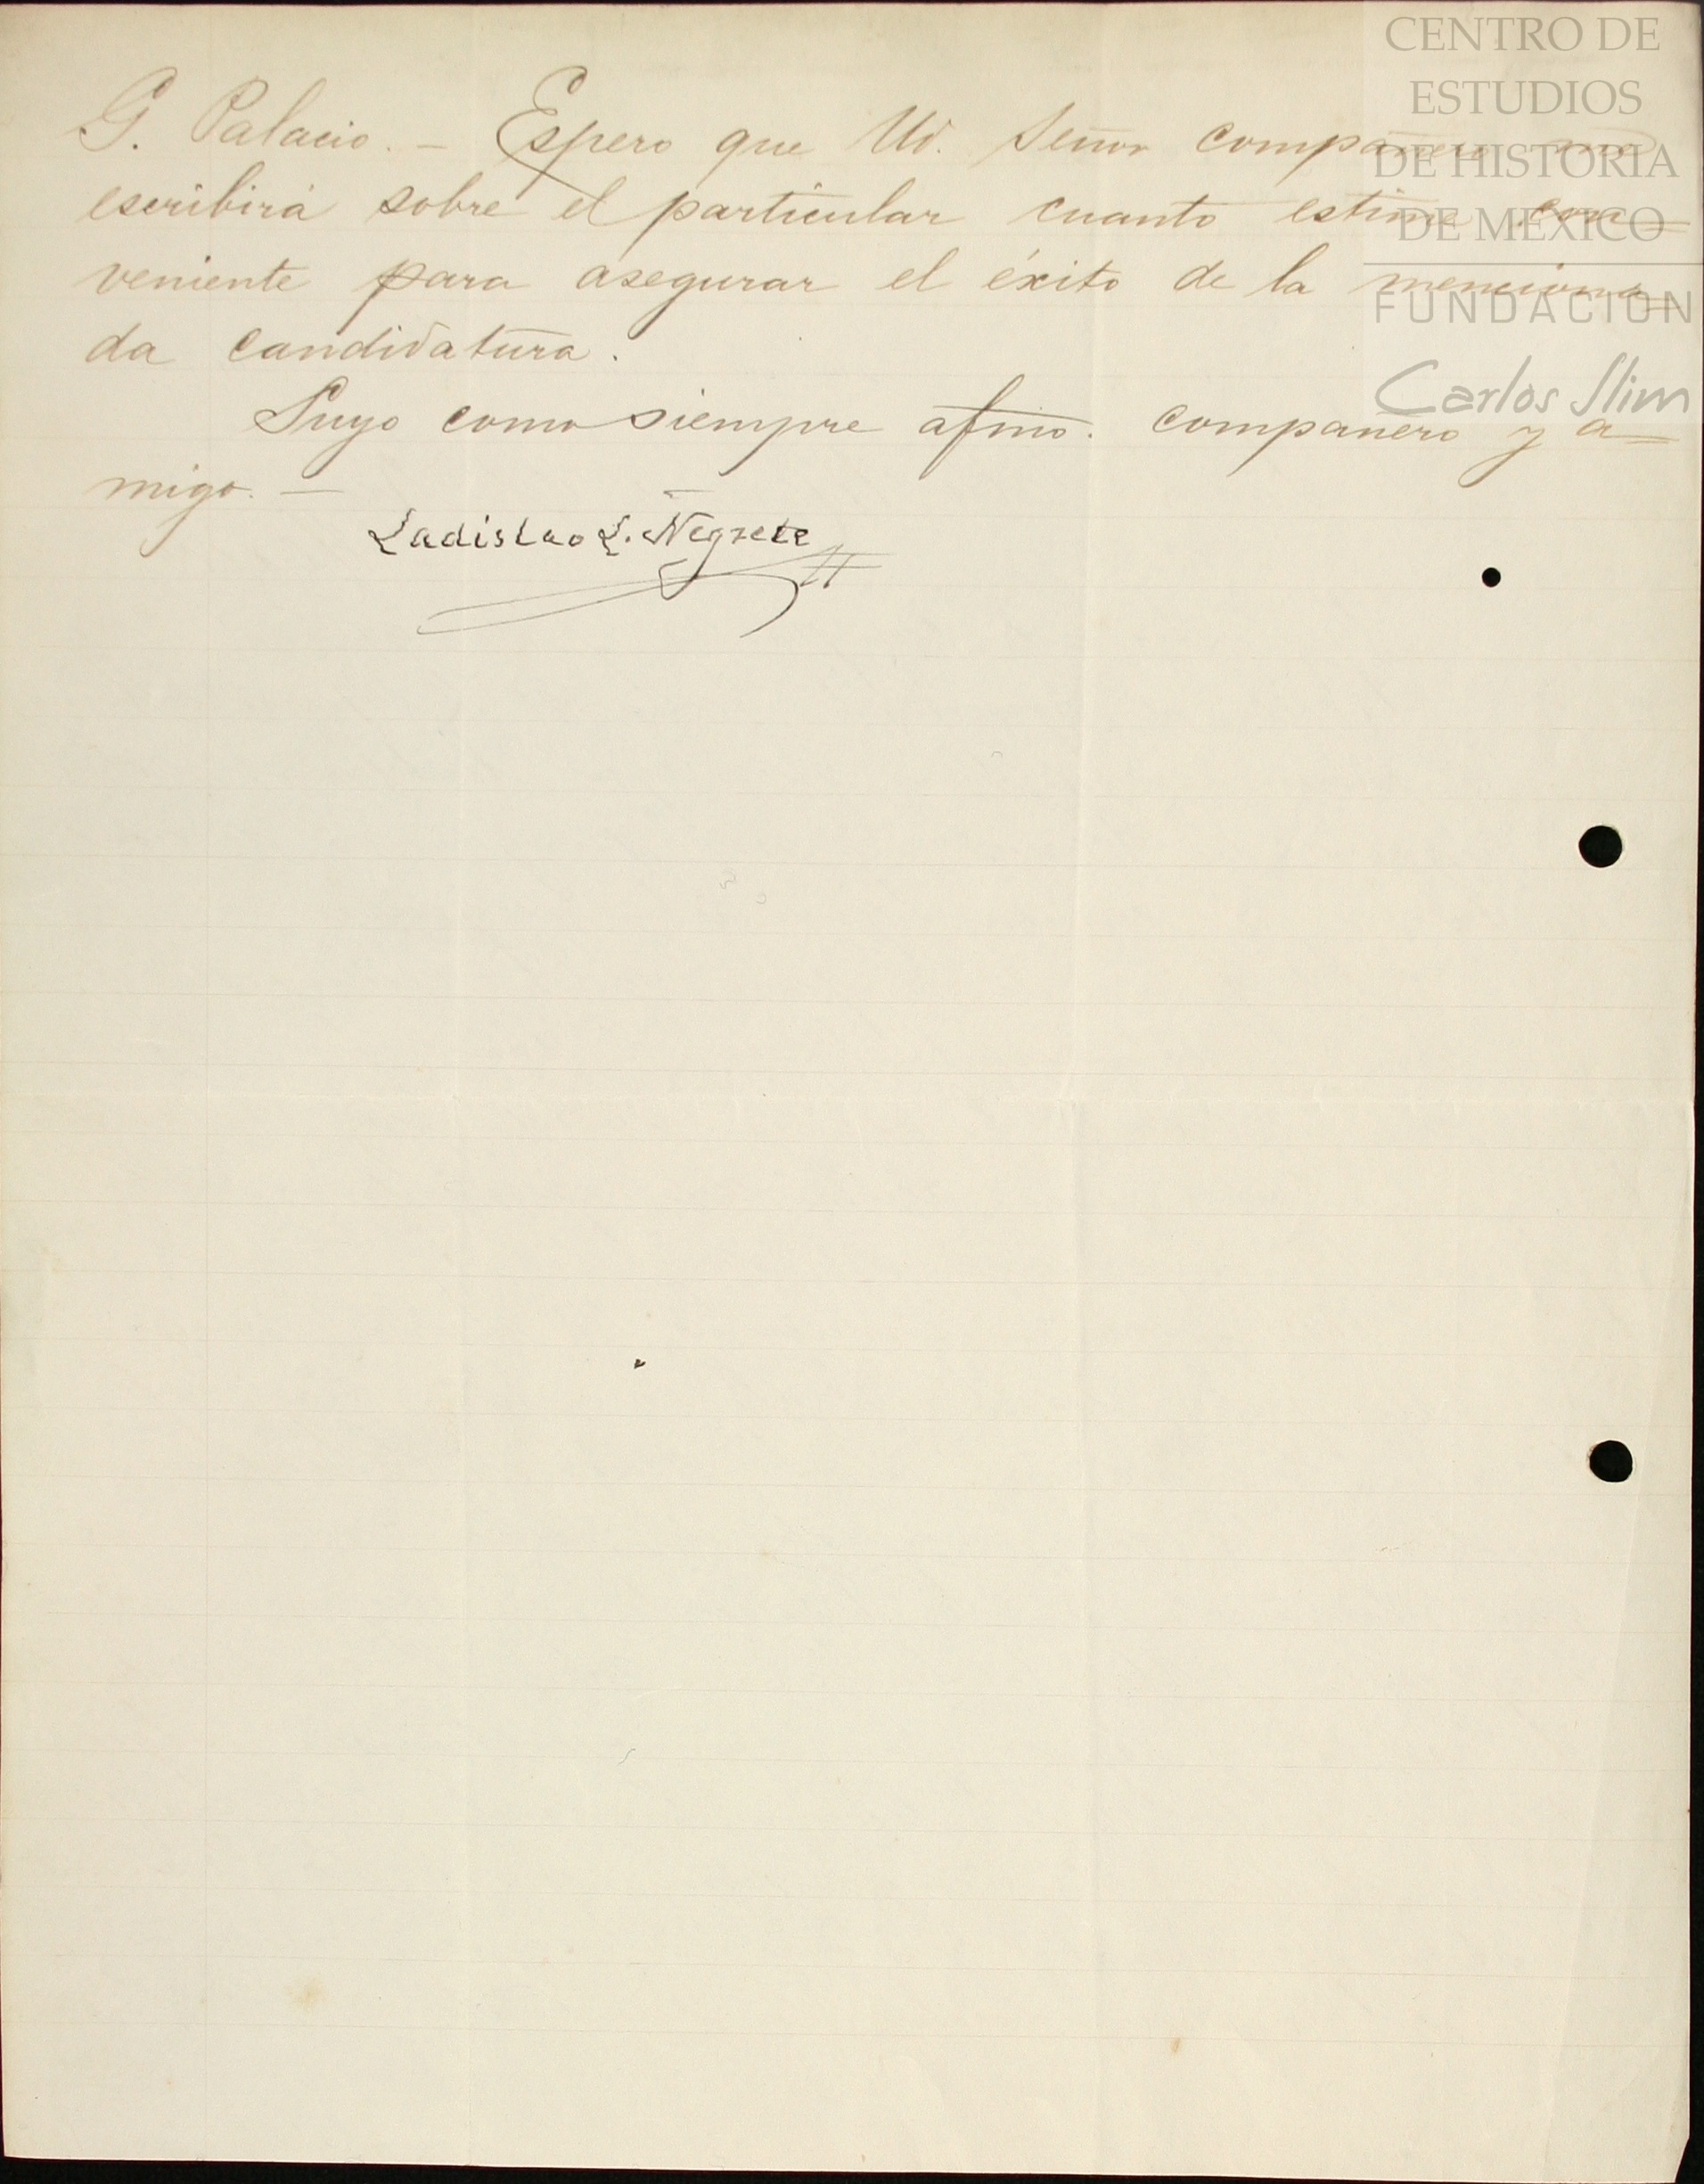 G. Palacio. - Espero que Ud. Señor compañero me
escribirá sobre el particular cuanto estime con=
veniente para asegurar el éxito de la menciona=
da candidatura.
Suyo como siempre afmo. compañero y a=
migo. -
Ladislao L. Negrete
CENTRO DE
ESTUDIOS
DE HISTORIA
DE MEXICO
FUNDACION
Carlos Slim